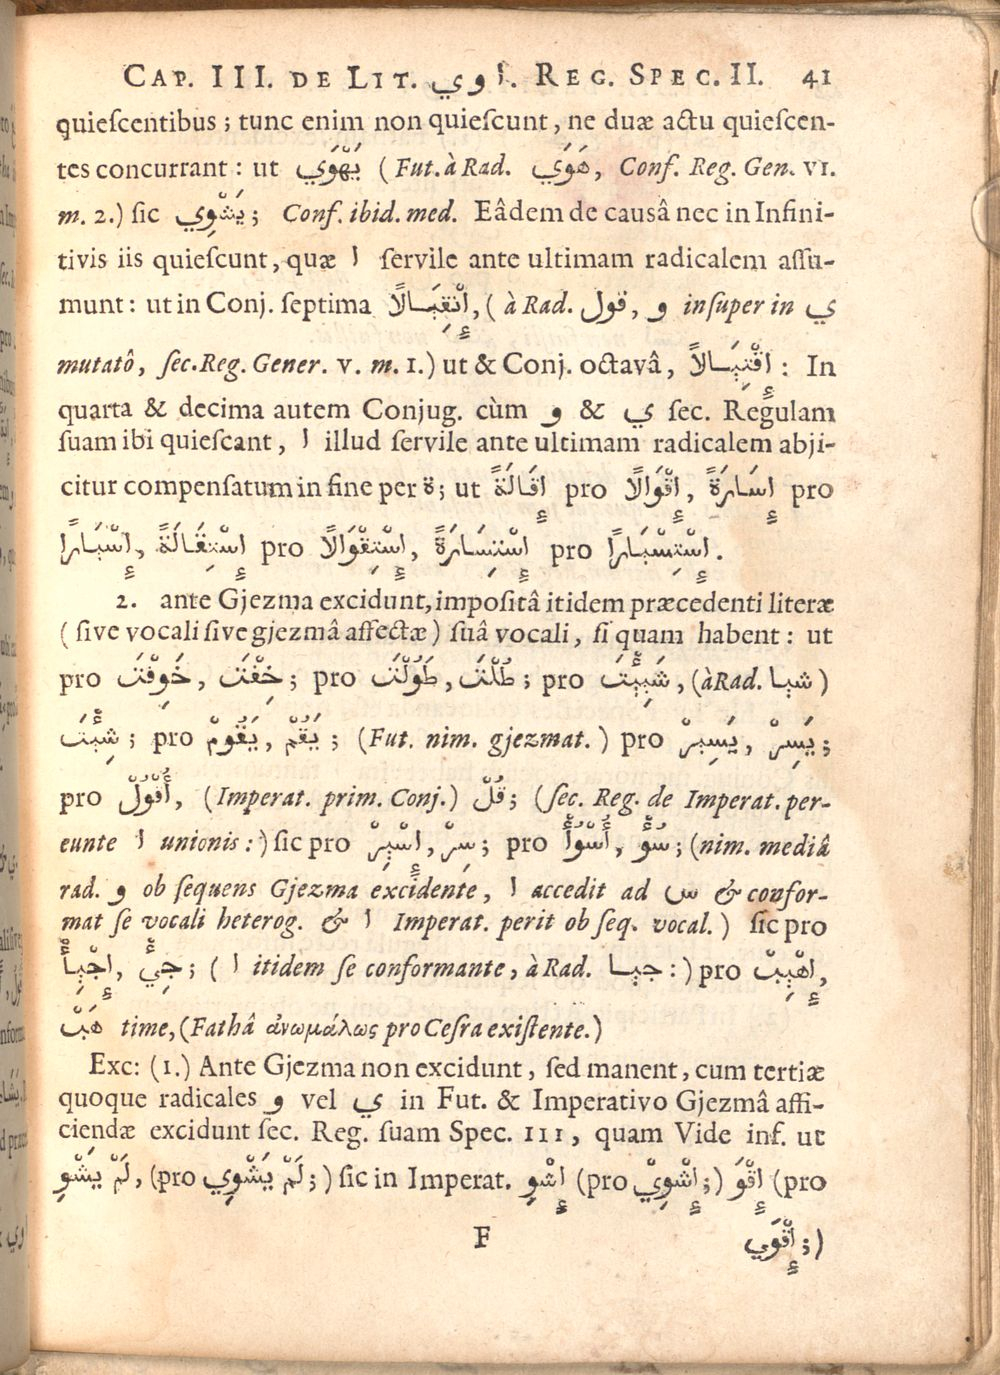 CAP. III. DE LIT. اوي. REG. SPEC. II. 41
quieſcentibus; tunc enim non quieſcunt, ne duæ actu quieſcen-
tes concurrant: ut يَهْوَي (Fut. à Rad. هَوَي, Conf. Reg. Gen. VI.
m. 2.) ſic يَشْوِي; Conf. ibid. med. Eâdem de cauſâ nec in Infini-
tivis iis quieſcunt, quæ ا ſervile ante ultimam radicalem aſſu-
munt: ut in Conj. ſeptima إِنْقِيَالًا, (à Rad. قول, و inſuper in ي
mutatô, ſec. Reg. Gener. V. m. 1.) ut & Conj. octavâ, إِقْتِيَالًا: In
quarta & decima autem Conjug. cùm و & ي ſec. Regulam
ſuam ibi quieſcant, ا illud ſervile ante ultimam radicalem abji-
citur compenſatum in fine per ة; ut إِقَالَةً pro إِقْوَالًا, إِسَارَةً pro
إِسْيَارًا, إِسْتِقَالَةً pro إِسْتِقْوَالًا, إِسْتِسَارَةً pro إِسْتِسْيَارًا.
2. ante Gjezma excidunt, impoſitâ itidem præcedenti literæ
(ſive vocali ſive gjezmâ affectæ) ſuâ vocali, ſi quam habent: ut
pro خَوِفْتَ, خِفْتَ; pro طَوُلْتَ, طُلْتَ; pro شَيِئْتَ, (à Rad. شيا)
شِئْتَ; pro يَقْوُمْ, يَقُمْ; (Fut. nim. gjezmat.) pro يَسْيِرْ, يَسِرْ;
pro أُقْوُلْ, (Imperat. prim. Conj.) قُلْ; (ſec. Reg. de Imperat. per-
eunte ا unionis:) ſic pro إِسْيِرْ, سِرْ; pro أُسْوُأْ, سُؤْ; (nim. mediâ
rad. و ob ſequens Gjezma excidente, ا accedit ad س & confor-
mat ſe vocali heterog. & ا Imperat. perit ob ſeq. vocal.) ſic pro
إِجْيِأْ, جِئْ; (ا itidem ſe conformante, à Rad. جيا:) pro إِهْيِبْ,
هَبْ time, (Fathâ ἀνωμάλως pro Ceſra exiſtente.)
Exc: (1.) Ante Gjezma non excidunt, ſed manent, cum tertiæ
quoque radicales و vel ي in Fut. & Imperativo Gjezmâ affi-
ciendæ excidunt ſec. Reg. ſuam Spec. III, quam Vide inf. ut
لَمْ يَشْوِ, (pro لَمْ يَشْوِي;) ſic in Imperat. إِشْوِ (pro إِشْوِيْ;) إِقْوَ (pro
F إِقْوَي;)